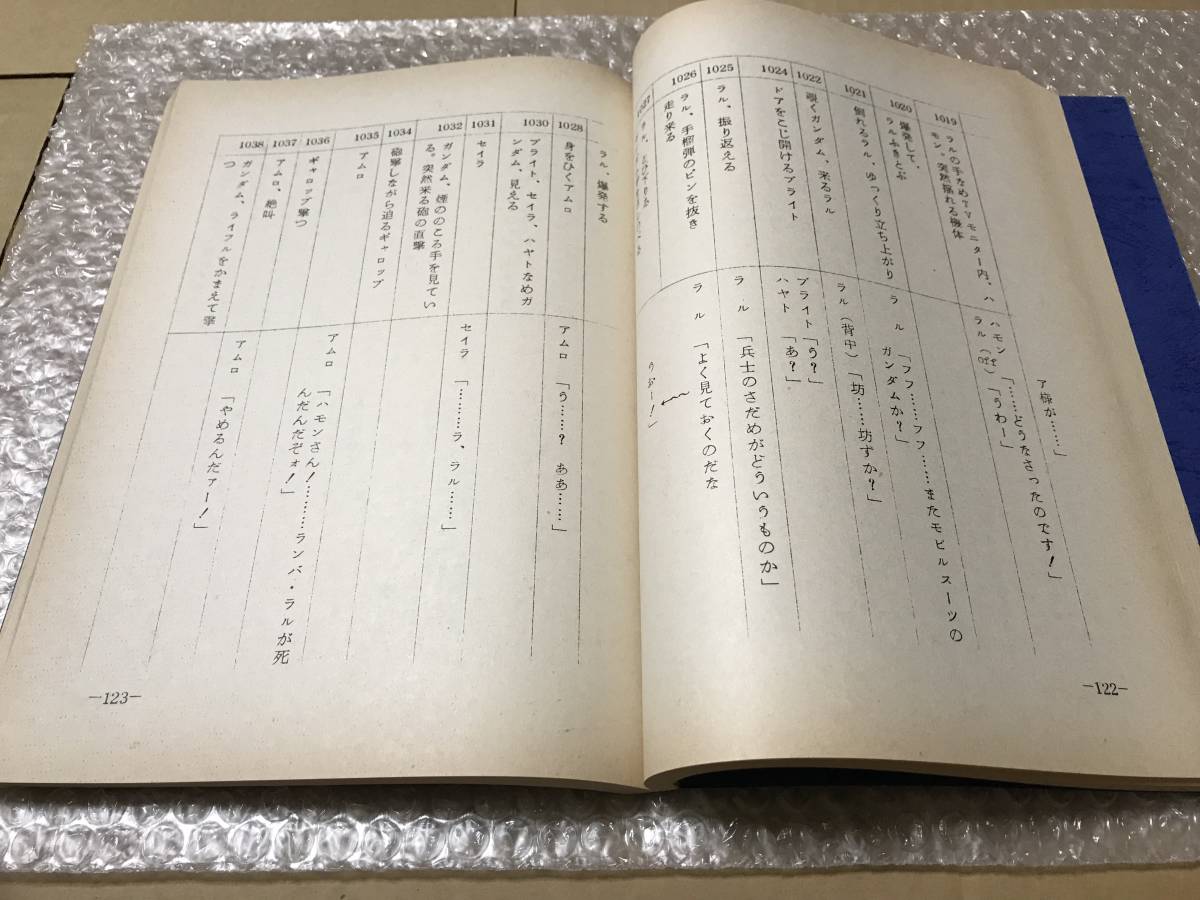 ア様が……」
1019
ラルの手なめTVモニター内、ハ
モン。突然揺れる機体
ハモン「……どうなさったのです！」
ラル「うわー」
1020
爆発して、
ラルふきとぶ
1021
倒れるラル、ゆっくり立ち上がり
ラル「フフ……フフ……またモビルスーツの
ガンダムか？」
1022
覗くガンダム、来るラル
ラル（背中）「坊……坊ずか？」
1024
ドアをとじ開けるブライト
ブライト「う？」
ハヤト「あ？」
1025
ラル、振り返える
ラル「兵士のさだめがどういうものか」
1026
ラル、手榴弾のピンを抜き
走り来る
ラル「よく見ておくのだな
うおー！」
1027
—122—
ラル、爆発する
1028
身をひくアムロ
アムロ「う……？　ああ……」
1030
ブライト、セイラ、ハヤトなめガ
ンダム、見える
1031
セイラ
セイラ「………ラ、ラル……」
1032
ガンダム、煙ののころ手を見てい
る。突然来る砲の直撃
1034
砲撃しながら迫るギャロップ
1035
アムロ
アムロ「ハモンさん！………ランバ・ラルが死
んだんだぞォ！」
1036
ギャロップ撃つ
1037
アムロ、絶叫
アムロ「やめるんだァー！」
1038
ガンダム、ライフルをかまえて撃
つ
—123—